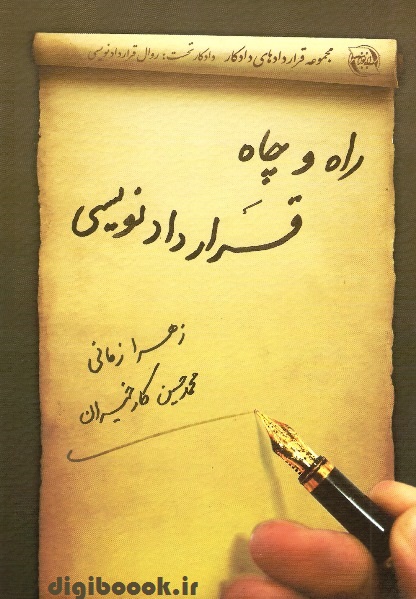 مجموعه قراردادهای دادکار دادکار نخست: روال قراردادنویسی
راه و چاه
قَرارداد نویسی
زهرا زمانی
محمدحسین کارخیران
digiboook.ir